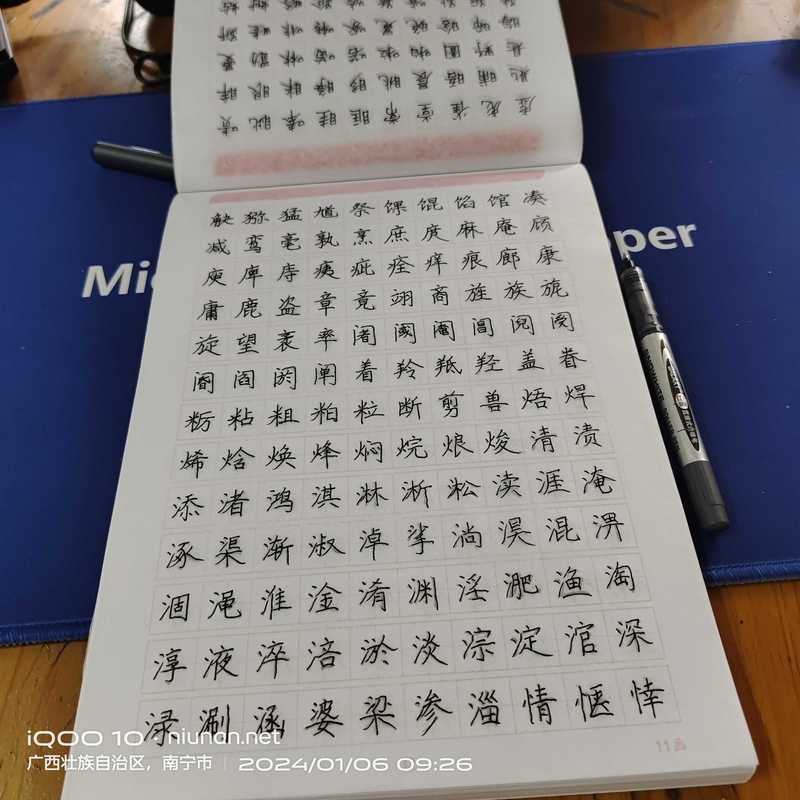 虚 彪 雀 堂 常 眶 眭 唪 眦 啧
匙 晡 晤 晨 眺 眵 睁 眯 眼 眸
觖 猕 猛 馗 祭 馃 馄 馅 馆 凑
减 鸾 毫 孰 烹 庶 庹 麻 庵 庼
庾 庳 痔 痍 疵 痊 痒 痕 廊 康
庸 鹿 盗 章 竟 翊 商 旌 族 旎
旋 望 袤 率 阇 阈 阉 阊 阋 阌
阍 阎 阏 阐 着 羚 羝 羟 盖 眷
粝 粘 粗 粕 粒 断 剪 兽 焐 焊
烯 焓 焕 烽 焖 烷 烺 焌 清 渍
添 渚 鸿 淇 淋 淅 淞 渎 涯 淹
涿 渠 渐 淑 淖 挲 淌 淏 混 淠
涸 渑 淮 淦 淆 渊 淫 淝 渔 淘
淳 液 淬 涪 淤 淡 淙 淀 涫 深
渌 涮 涵 婆 梁 渗 淄 情 惬 悻
11画
iQOO 10 · niunan.net
广西壮族自治区，南宁市 2024/01/06 09:26